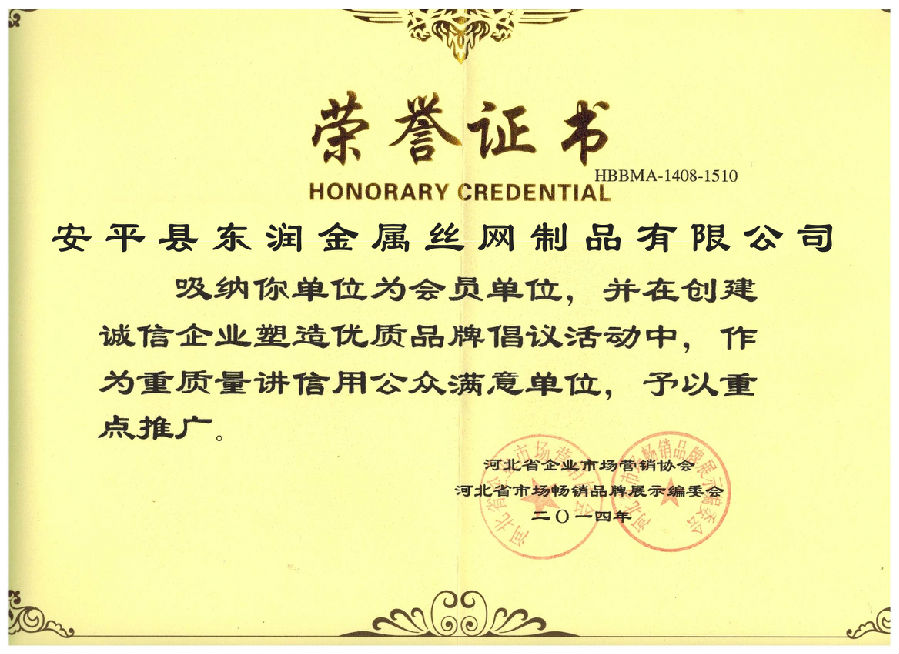 荣誉证书
HBBMA-1408-1510
HONORARY CREDENTIAL
安平县东润金属丝网制品有限公司
吸纳你单位为会员单位，并在创建
诚信企业塑造优质品牌倡议活动中，作
为重质量讲信用公众满意单位，予以重
点推广。
河北省企业市场营销协会
河北省市场畅销品牌展示编委会
二〇一四年
河北省企业市场营销协会
河北省市场畅销品牌展示编委会